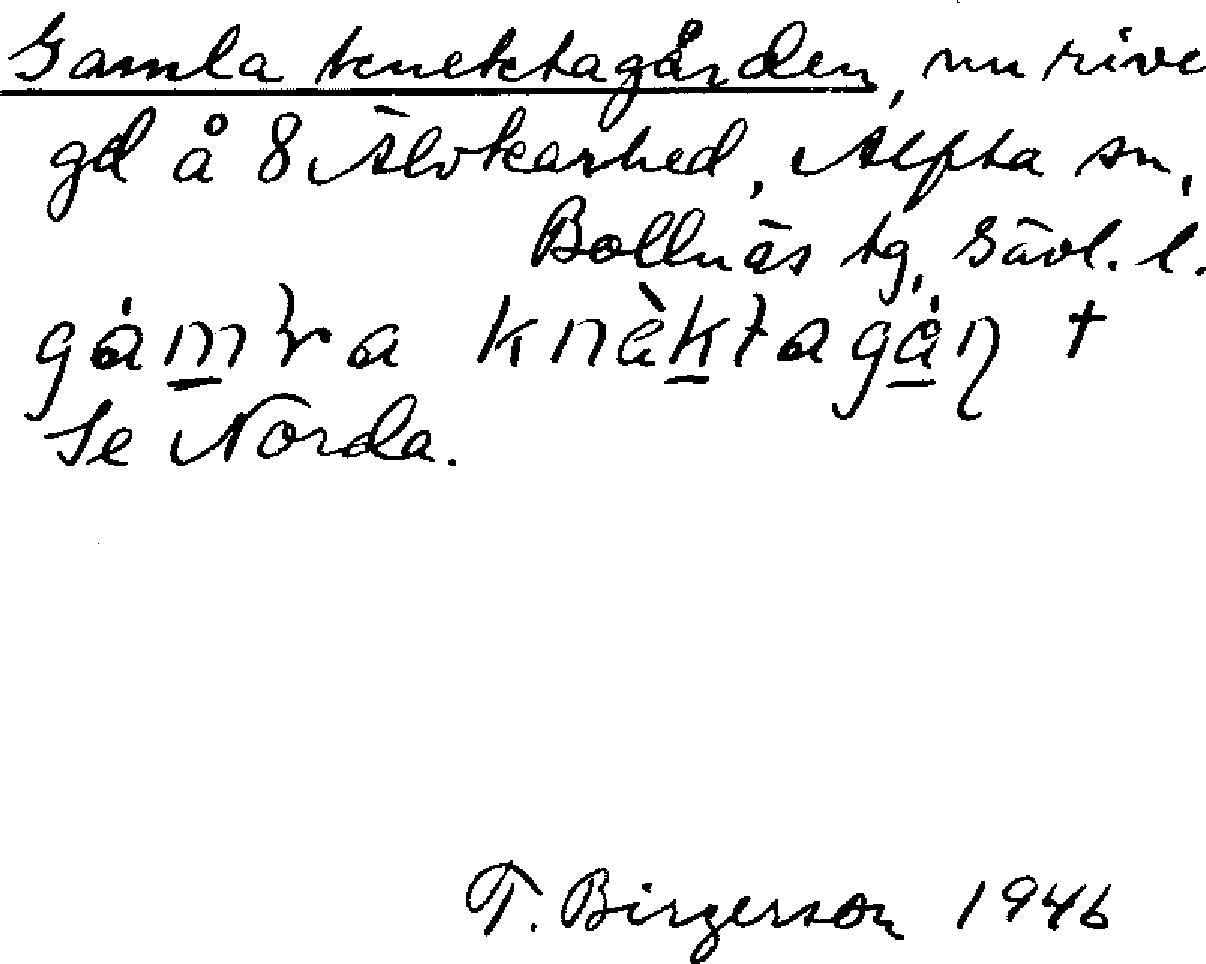 Gamla knektagården, nu rive
gd å 8 Älvkarhed, Alfta sn,
Bollnäs tg, Gävl. l.
gámɽa knὲktagáɳ †
Se Norda.
T. Birgerson 1946